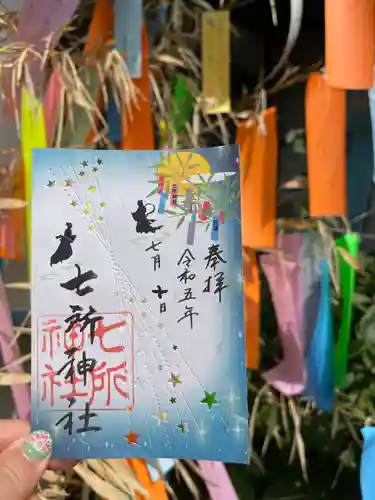 奉拝
令和五年
七月十日
七所神社
七所
神社